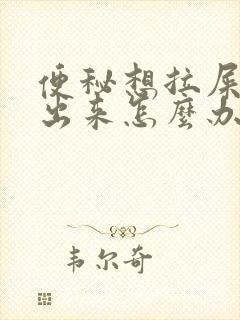 便秘想拉屎
出来怎麽办
韦尔奇